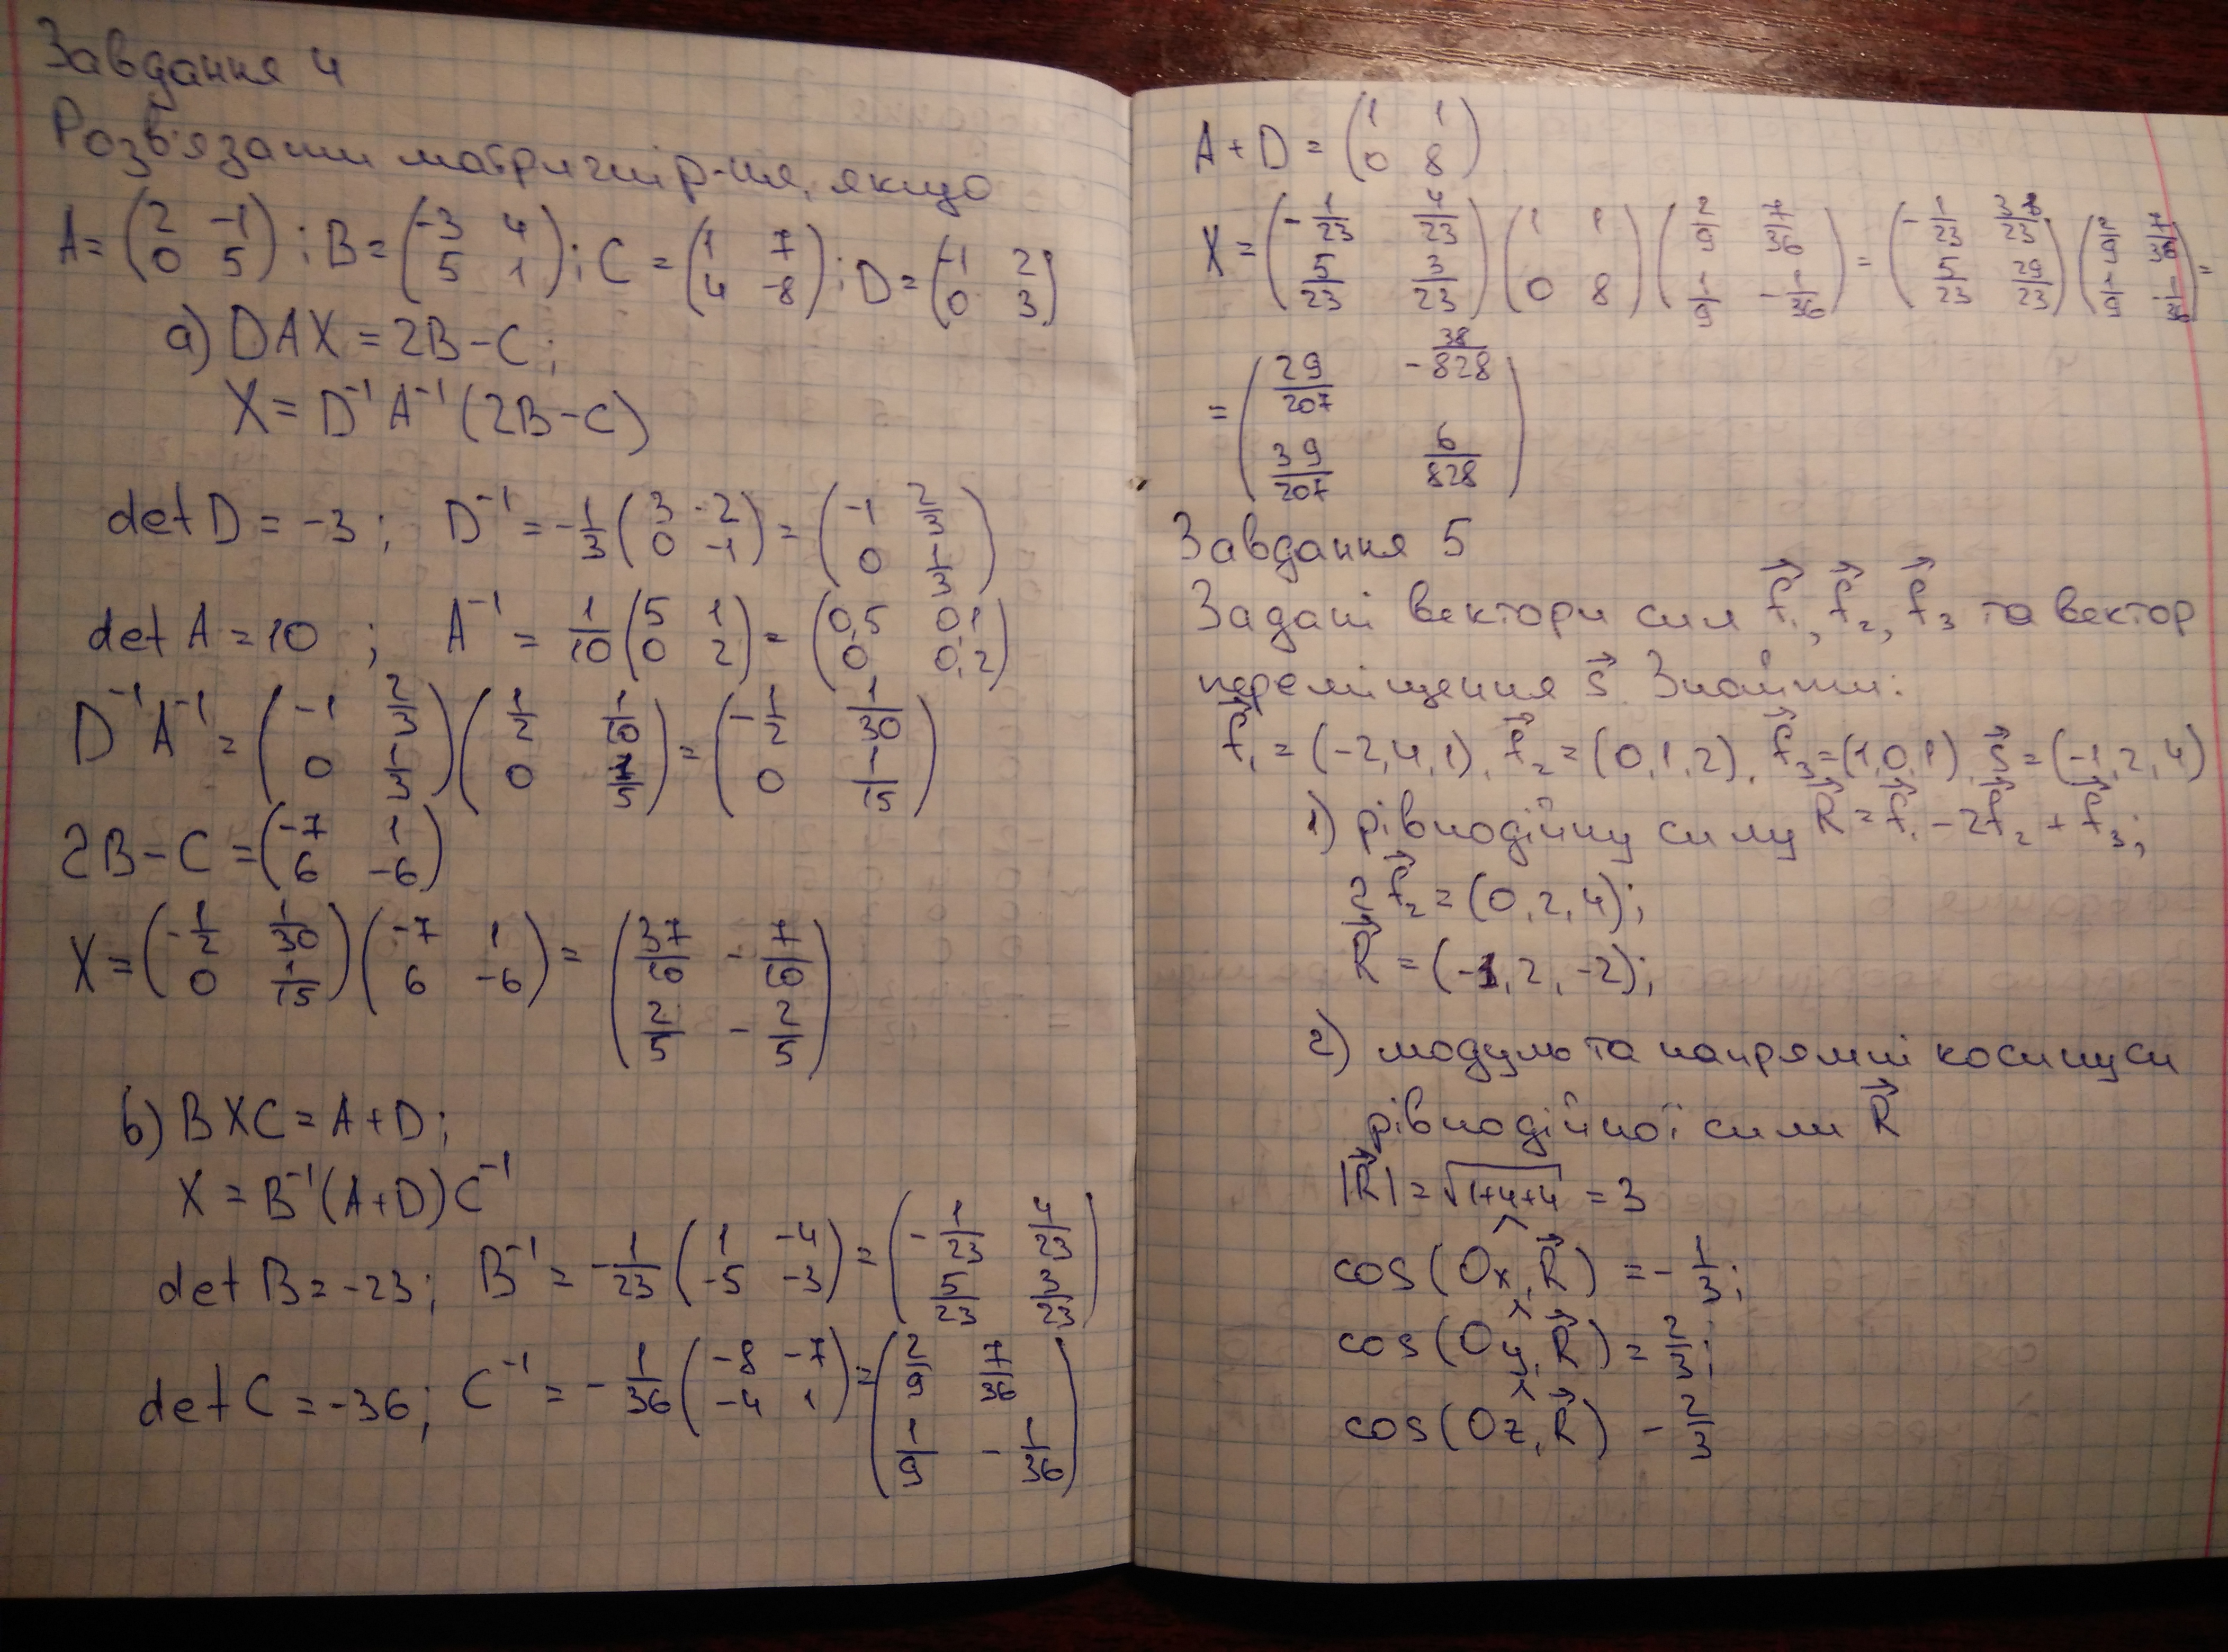 Завдання 4
Розв'язати матричні р-ня, якщо
A = (2 -1; 0 5); B = (-3 4; 5 1); C = (1 7; 4 -8); D = (-1 2; 0 3)
а) DAX = 2B - C;
X = D⁻¹ A⁻¹ (2B - C)
det D = -3; D⁻¹ = -1/3 (3 -2; 0 -1) = (-1 2/3; 0 1/3)
det A = 10; A⁻¹ = 1/10 (5 1; 0 2) = (0,5 0,1; 0 0,2)
D⁻¹ A⁻¹ = (-1 2/3; 0 1/3) (1/2 1/10; 0 1/5) = (-1/2 1/30; 0 1/15)
2B - C = (-7 1; 6 -6)
X = (-1/2 1/30; 0 1/15) (-7 1; 6 -6) = (37/10 -7/10; 2/5 -2/5)
б) BXC = A + D;
X = B⁻¹ (A + D) C⁻¹
det B = -23; B⁻¹ = -1/23 (1 -4; -5 -3) = (-1/23 4/23; 5/23 3/23)
det C = -36; C⁻¹ = -1/36 (-8 -7; -4 1) = (2/9 7/36; 1/9 -1/36)
A + D = (1 1; 0 8)
X = (-1/23 4/23; 5/23 3/23) (1 1; 0 8) (2/9 7/36; 1/9 -1/36) = (-1/23 /23; 5/23 29/23) (2/9 7/36; 1/9 -1/36) =
= (29/207 -38/828; 39/207 6/828)
Завдання 5
Задані вектори сил f⃗₁, f⃗₂, f⃗₃ та вектор
переміщення s⃗. Знайти:
f⃗₁ = (-2, 4, 1), f⃗₂ = (0, 1, 2), f⃗₃ = (1, 0, 1), s⃗ = (-1, 2, 4)
1) рівнодійну силу R⃗ = f⃗₁ - 2f⃗₂ + f⃗₃;
2f⃗₂ = (0, 2, 4);
R⃗ = (-1, 2, -2);
2) модуль та напрямні косинуси
рівнодійної сили R⃗
|R⃗| = √1+4+4 = 3
cos(Ox, R⃗) = -1/3;
cos(Oy, R⃗) = 2/3;
cos(Oz, R⃗) - 2/3